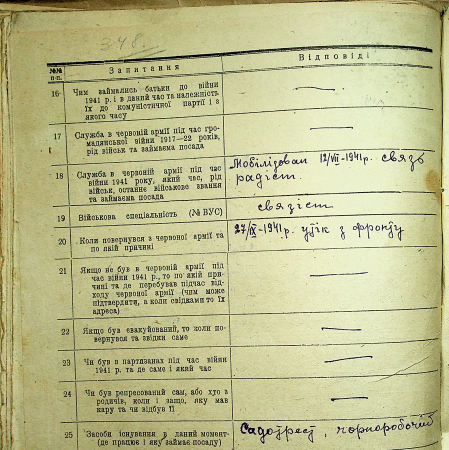 348.
№№ п-п.
Запитання
Відповіді
16 Чим займались батьки до війни
1941 р. і в даний час та належність
їх до комуністичної партії і з
якого часу
—
17 Служба в червоній армії під час гро-
мадянської війни 1917—22 років,
рід військ та займаєма посада
—
18 Служба в червоній армії під час
війни 1941 року, який час, рід
військ, останнє військове звання
та займаєма посада
Мобілізован 12/VII-1941 р. связь
радіст.
19 Військова спеціальність (№ ВУС)
связіст
20 Коли повернувся з червоної армії та
по якій причині
27/IX-1941 р. утік з фронту
21 Якщо не був в червоній армії під
час війни 1941 р., то по якій при-
чині та де перебував підчас від-
ходу червоної армії (чим може
підтвердити, а коли свідками то їх
адреса)
—
22 Якщо був евакуйований, то коли по-
вернувся та звідки саме
—
23 Чи був в партизанах під час війни
1941 р. та де саме і який час
—
24 Чи був репресований сам, або хто з
родичів, коли і защо, яку мав
кару та чи відбув її
—
25 Засоби існування в даний момент-
(де працює і яку займає посаду)
Садотрест, чорноробочий